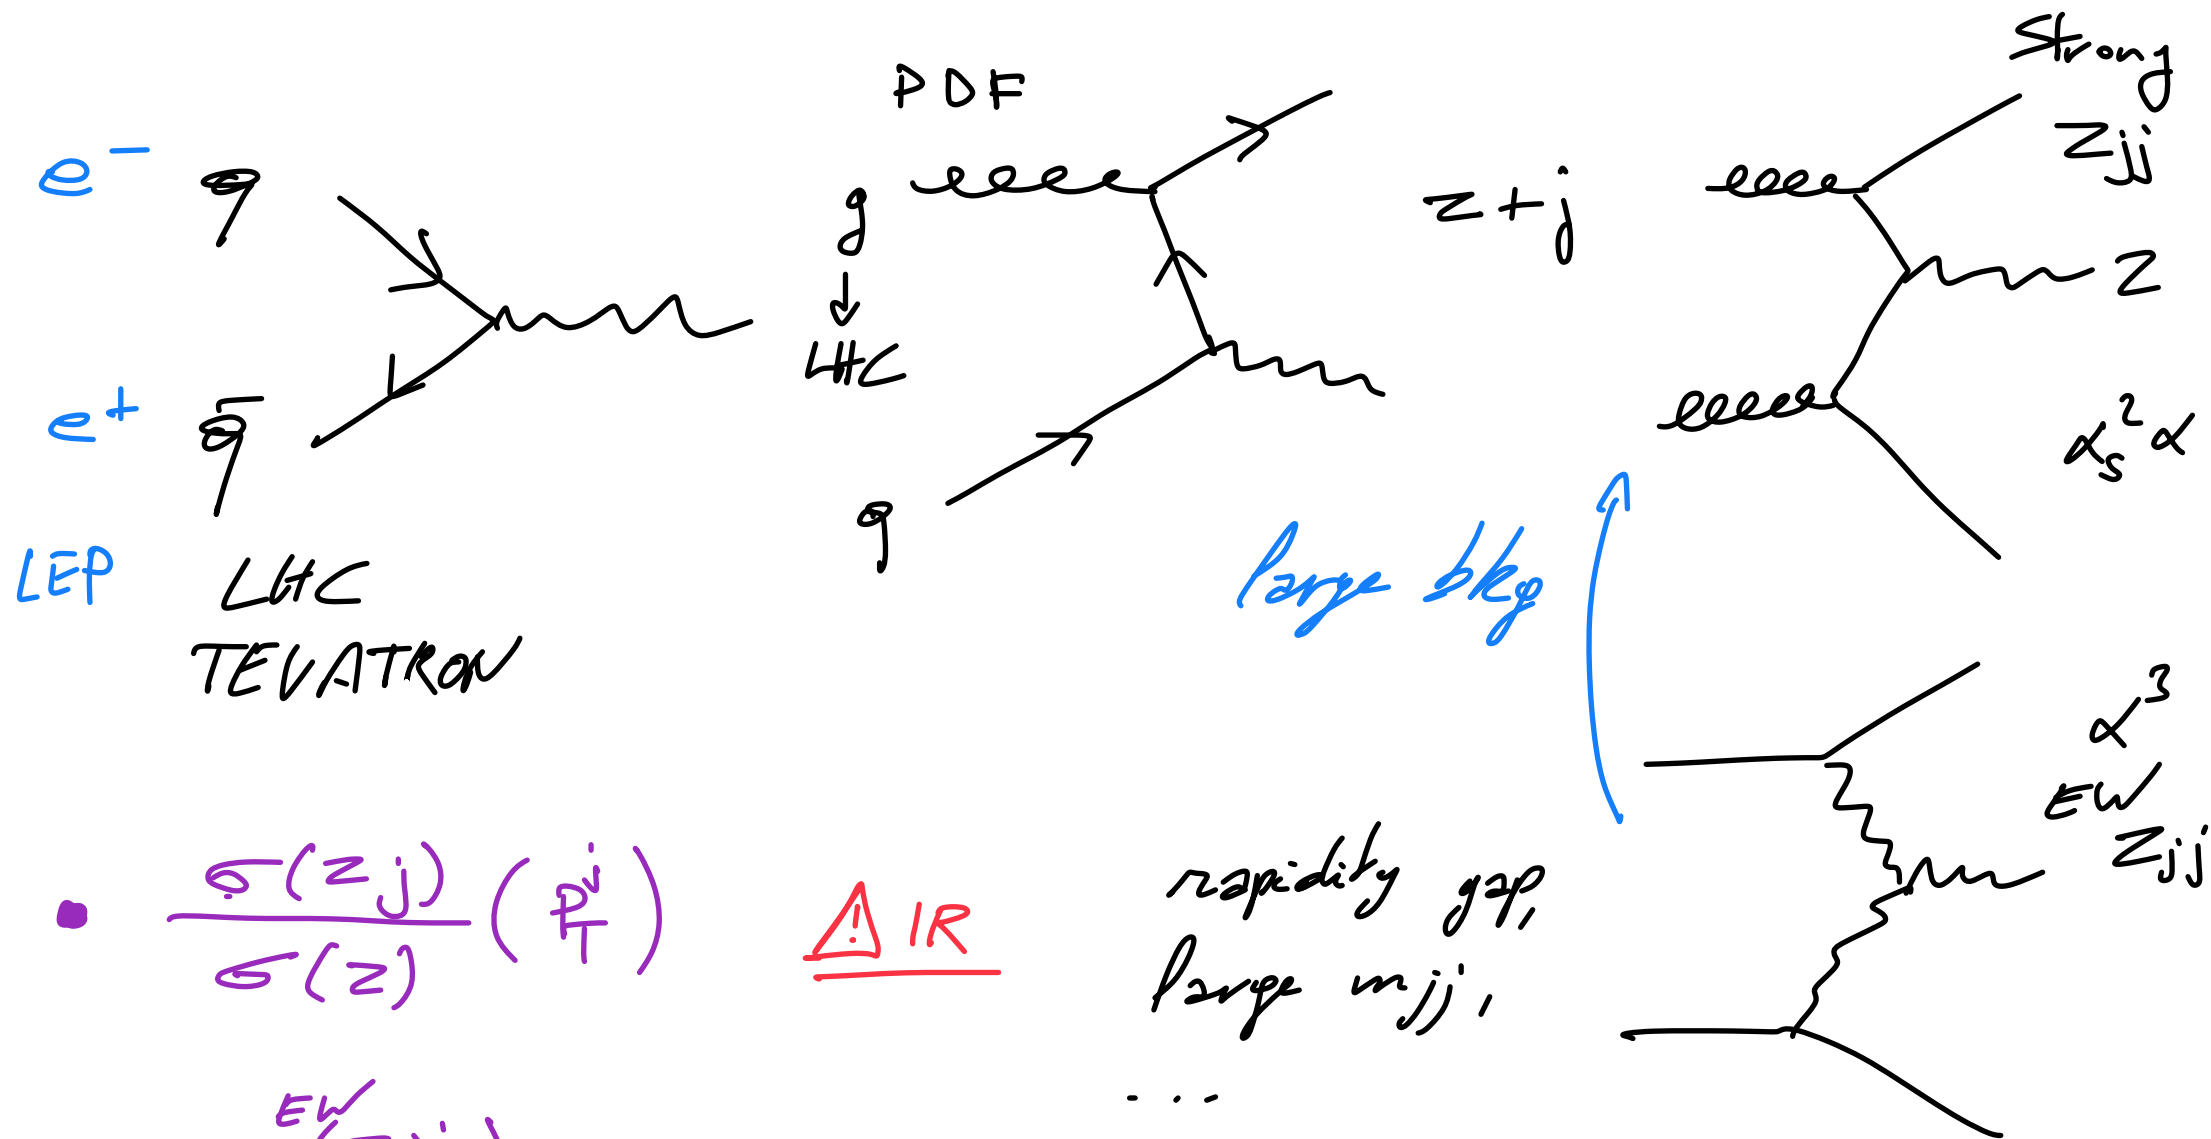 e⁻ q
e⁺ q̅
LEP LHC
TEVATRON
PDF
g
↓
LHC
q
z + j
Strong
Zjj
Z
αs²α
large bkg
α³
EW
Zjj
• σ(Zj) / σ(Z) (pTʲ)
⚠ IR
rapidity gap,
large mjj,
...
EW